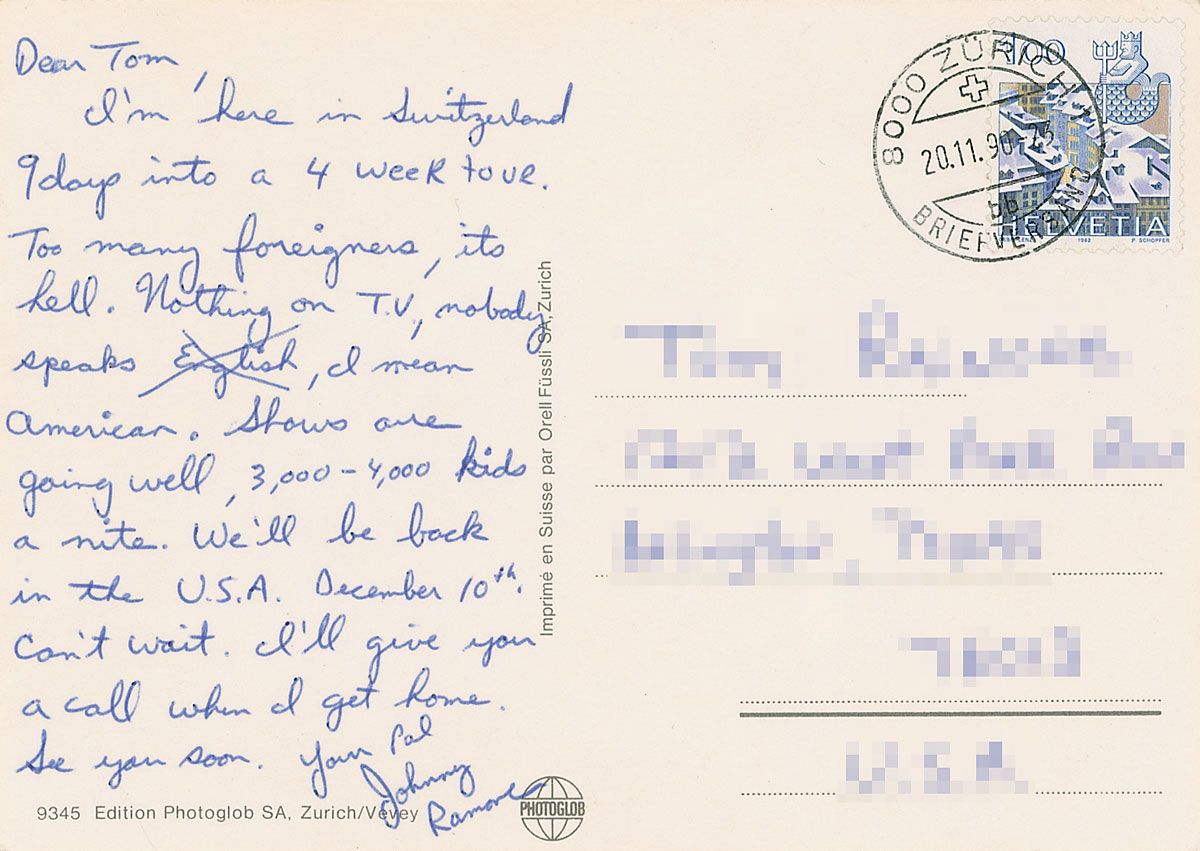 Dear Tom,
I'm here in Switzerland
9 days into a 4 week tour.
Too many foreigners, its
hell. Nothing on T.V., nobody
speaks English, I mean
American. Shows are
going well, 3,000-4,000 kids
a nite. We'll be back
in the U.S.A. December 10th.
Can't wait. I'll give you
a call when I get home.
See you soon. Your Pal
Johnny
Ramone
9345 Edition Photoglob SA, Zurich/Vevey
PHOTOGLOB
Imprimé en Suisse par Orell Füssli SA, Zurich
8000 ZÜRICH 1
20.11.90-23
bb
BRIEFVERSAND
100
HELVETIA
1982 P. SCHOPFER
Tom
U.S.A